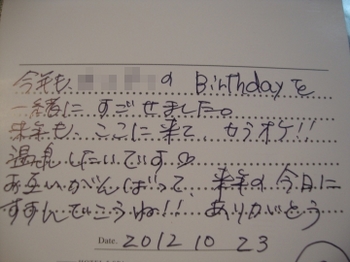 今年も の Birthdayを
一緒にすごせました。
来年も、ここに来て、カラオケ!!
温泉したいです♡
お互いがんばって、来年の今日に
すすんでいこうね!! ありがとう
Date. 2012 10 23